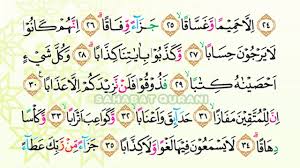 ٢٤ اِلَّا حَمِيْمًا وَّغَسَّاقًا ٢٥ جَزَاۤءً وِّفَاقًا ٢٦ اِنَّهُمْ كَانُوْا
لَا يَرْجُوْنَ حِسَابًا ٢٧ وَّكَذَّبُوْا بِاٰيٰتِنَا كِذَّابًا ٢٨ وَكُلَّ شَيْءٍ
اَحْصَيْنٰهُ كِتٰبًا ٢٩ فَذُوْقُوْا فَلَنْ نَّزِيْدَكُمْ اِلَّا عَذَابًا ٣٠
SAHABAT QURANI
اِنَّ لِلْمُتَّقِيْنَ مَفَازًا ٣١ حَدَاۤىِٕقَ وَاَعْنَابًا ٣٢ وَّكَوَاعِبَ اَتْرَابًا ٣٣ وَّكَأْسًا
دِهَاقًا ٣٤ لَا يَسْمَعُوْنَ فِيْهَا لَغْوًا وَّلَا كِذَّابًا ٣٥ جَزَاۤءً مِّنْ رَّبِّكَ عَطَاۤءً